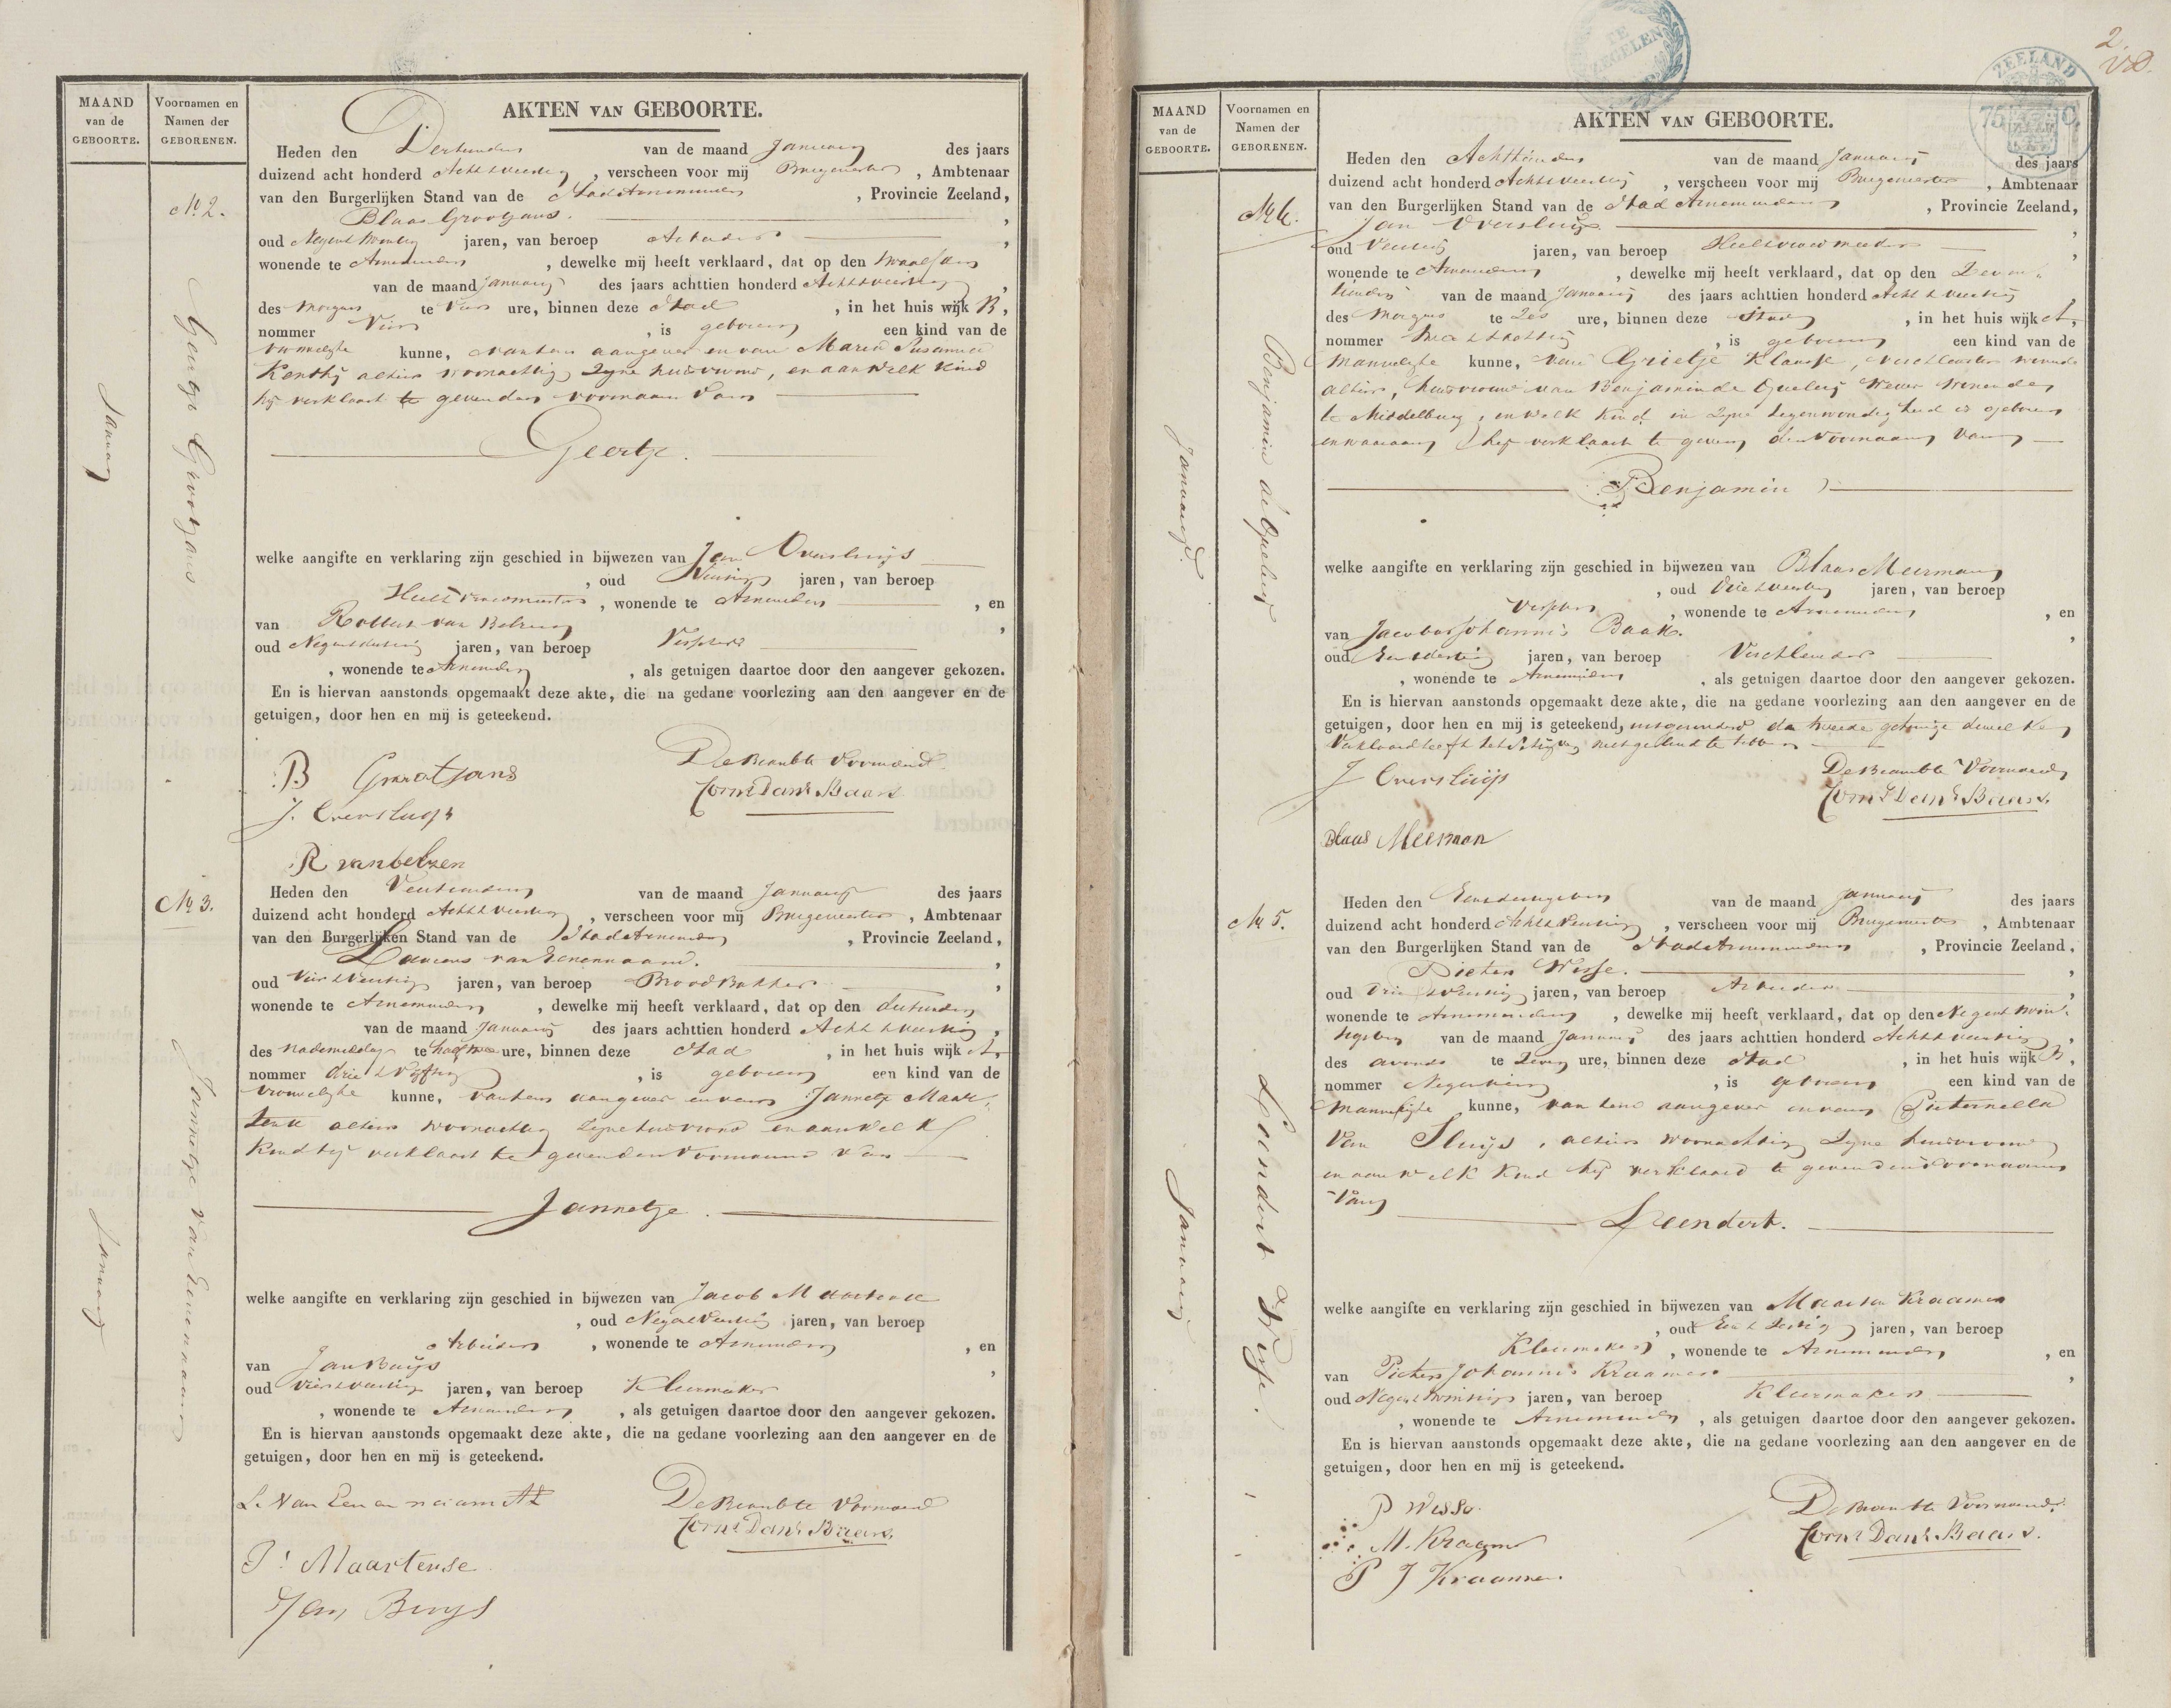 MAAND
van de
GEBOORTE.
Voornamen en
Namen der
GEBORENEN.
AKTEN VAN GEBOORTE.
No 2.
Geertje Grootjans
Januarij
Heden den Dertienden van de maand Januarij des jaars
duizend acht honderd Acht & veertig, verscheen voor mij Burgemeester, Ambtenaar
van den Burgerlijken Stand van de Stad Arnemuiden, Provincie Zeeland,
Blaas Grootjans.
oud Negen & twintig jaren, van beroep Arbeider,
wonende te Arnemuiden, dewelke mij heeft verklaard, dat op den twaalfden
van de maand Januarij des jaars achttien honderd Acht & veertig,
des morgens te vier ure, binnen deze Stad, in het huis wijk B,
nommer Vier, is geboren een kind van de
vrouwelijke kunne, van hem aangever en van Maria Susanna
alhier woonachtig zijne huisvrouw, en aan welk kind
hij verklaart te geven den voornaam van
Geertje.
welke aangifte en verklaring zijn geschied in bijwezen van Jan Oversluijs
, oud Veertig jaren, van beroep
Heelvroedmeester, wonende te Arnemuiden, en
van Robbert van Belzen,
oud Negen & dertig jaren, van beroep Visscher
, wonende te Arnemuiden, als getuigen daartoe door den aangever gekozen.
En is hiervan aanstonds opgemaakt deze akte, die na gedane voorlezing aan den aangever en de
getuigen, door hen en mij is geteekend.
B Grootjans
De Beambte Voornoemd
Corns Danl Baars
J. Oversluijs
R van belzen
No 3.
Jannetje van Eenennaam
Januarij
Heden den Veertienden van de maand Januarij des jaars
duizend acht honderd Acht & veertig, verscheen voor mij Burgemeester, Ambtenaar
van den Burgerlijken Stand van de Stad Arnemuiden, Provincie Zeeland,
Laurens van Eenennaam.
oud Vier & Veertig jaren, van beroep Brood Bakker,
wonende te Arnemuiden, dewelke mij heeft verklaard, dat op den dertienden
van de maand Januarij des jaars achttien honderd Acht & veertig,
des nademiddags te half twee ure, binnen deze Stad, in het huis wijk A,
nommer drie & Vijftig, is geboren een kind van de
vrouwelijke kunne, van hem aangever en van Jannetje Maar-
tense alhier woonachtig zijne huisvrouw en aan welk
kind hij verklaart te geven den Voornaam van
Jannetje.
welke aangifte en verklaring zijn geschied in bijwezen van Jacob Maartense
, oud Negen & Veertig jaren, van beroep
Arbeider, wonende te Arnemuiden, en
van Jan Buijs,
oud Vier & veertig jaren, van beroep Kleermaker
, wonende te Arnemuiden, als getuigen daartoe door den aangever gekozen.
En is hiervan aanstonds opgemaakt deze akte, die na gedane voorlezing aan den aangever en de
getuigen, door hen en mij is geteekend.
L. Van Eenennaam
De Beambte Voornoemd
Corns Danl Baars
J: Maartense
Jan Buijs
2
TE
ZEGELEN
ZEELAND
MAAND
van de
GEBOORTE.
Voornamen en
Namen der
GEBORENEN.
AKTEN VAN GEBOORTE.
No 4.
Benjamin de Queleij
Januarij
Heden den Achttienden van de maand Januarij des jaars
duizend acht honderd Acht & veertig, verscheen voor mij Burgemeester, Ambtenaar
van den Burgerlijken Stand van de Stad Arnemuiden, Provincie Zeeland,
Jan Oversluijs,
oud Veertig jaren, van beroep Heelvroedmeester,
wonende te Arnemuiden, dewelke mij heeft verklaard, dat op den Zeven-
tienden van de maand Januarij des jaars achttien honderd Acht & veertig,
des Morgens te Zes ure, binnen deze Stad, in het huis wijk A,
nommer, is geboren een kind van de
Manuelijke kunne, van Grietje Klaasse, wonende
alhier, huisvrouw van Benjamin de Queleij wonende
te Middelburg, en welk kind in zijne tegenwoordigheid is geboren
en waaraan hij verklaart te geven den Voornaam van
Benjamin
welke aangifte en verklaring zijn geschied in bijwezen van Blaas Meerman
, oud Drie & Veertig jaren, van beroep
Visscher, wonende te Arnemuiden, en
van Jacobus Johannis Baak.
oud Een & dertig jaren, van beroep
, wonende te Arnemuiden, als getuigen daartoe door den aangever gekozen.
En is hiervan aanstonds opgemaakt deze akte, die na gedane voorlezing aan den aangever en de
getuigen, door hen en mij is geteekend, uitgezonderd de tweede getuige dewelke
Verklaard heeft het schrijven niet geleerd te hebben
J Oversluijs
De Beambte Voornoemd
Corns Danl Baars.
Blaas Meerman
No 5.
Leendert Wisse.
Januarij
Heden den Eenentwintigsten van de maand Januarij des jaars
duizend acht honderd Acht & Veertig, verscheen voor mij Burgemeester, Ambtenaar
van den Burgerlijken Stand van de Stad Arnemuiden, Provincie Zeeland,
Pieter Wisse.,
oud Drie & Veertig jaren, van beroep Arbeider,
wonende te Arnemuiden, dewelke mij heeft verklaard, dat op den
van de maand Januarij des jaars achttien honderd Acht & veertig,
des avonds te Zeven ure, binnen deze Stad, in het huis wijk B,
nommer, is geboren een kind van de
Manuelijke kunne, van hem aangever en van Pieternella
Van Sluijs, alhier woonachtig zijne huisvrouw
en aan welk kind hij verklaard te geven den Voornaam
Van
Leendert.
welke aangifte en verklaring zijn geschied in bijwezen van Maarten Kraamer
, oud jaren, van beroep
Kleermaker, wonende te Arnemuiden, en
van Pieter Johannis Kraamer,
oud Negen & twintig jaren, van beroep Kleermaker
, wonende te Arnemuiden, als getuigen daartoe door den aangever gekozen.
En is hiervan aanstonds opgemaakt deze akte, die na gedane voorlezing aan den aangever en de
getuigen, door hen en mij is geteekend.
P Wisse.
De Beambte Voornoemd.
Corns Danl Baars.
M. Kraamer
P J Kraamer.